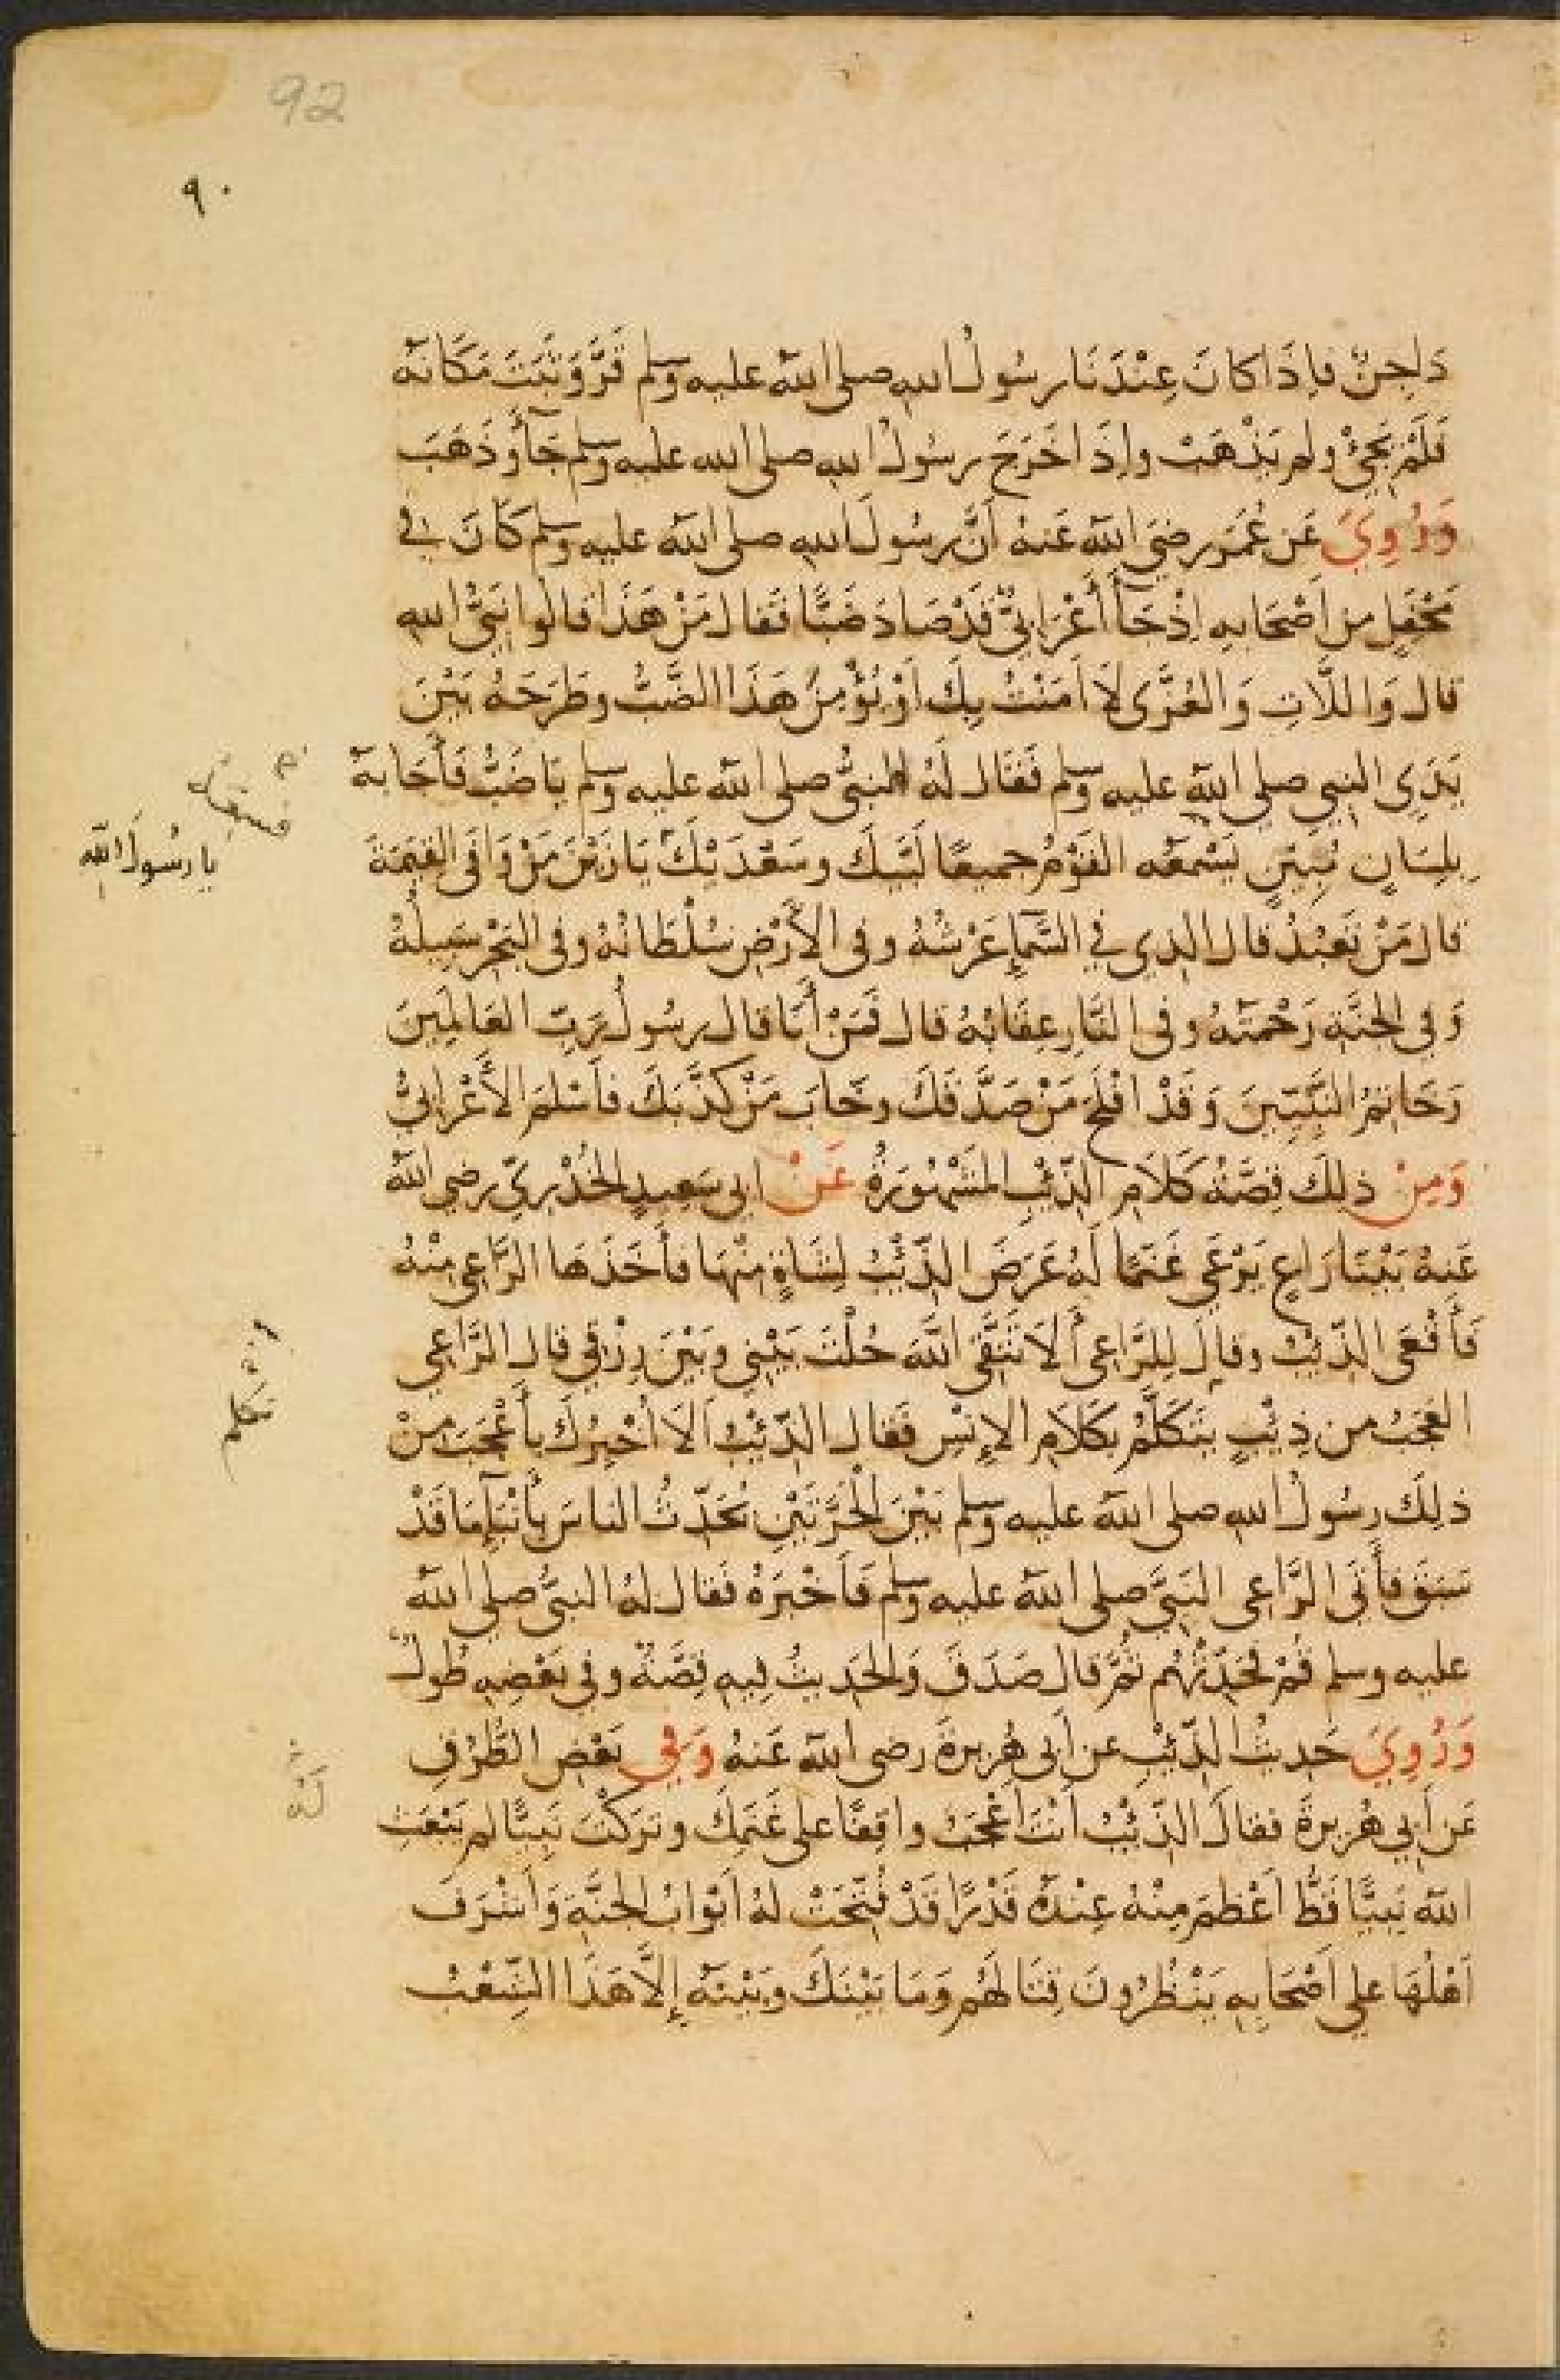 92
٩٠
دَاجِنٌ فإِذَا كَانَ عِنْدَنَا رسُولُ اللهِ صلى اللهُ عليه وسلم قَرَّ وَثَبَتَ مَكَانَهُ
فَلَمْ يَجِئْ ولم يَذْهَبْ وإِذَا خَرَجَ رسُولُ اللهِ صلى الله عليه وسلم جَآءَ وَذَهَبَ
وَرُوِيَ عَن عُمَرَ رضيَ اللهُ عَنهُ أَنَّ رسُولَ اللهِ صلى اللهُ عليه وسلم كَانَ فِي
مَحْفِلٍ من أَصْحَابِهِ إِذْ جَآءَ أَعْرَابِيٌّ قَدْ صَادَ ضَبًّا فَقَال مَنْ هَذَا قالوا نَبِيُّ اللهِ
قال وَاللَّاتِ وَالعُزَّى لَا آمَنْتُ بِكَ أَوْ يُؤْمِنُ هَذَا الضَّبُّ وطَرَحَهُ بَيْنَ
يَدَيِ النبيِ صلى اللهُ عليه وسلم فَقَال لَهُ النبيُّ صلى اللهُ عليه وسلم يَا ضَبُّ فَأَجَابَهُ
بِلِسَانٍ مُبِينٍ يَسْمَعُه القَوْمُ جميعًا لَبَّيْكَ وسَعْدَيْكَ يَا زَيْنَ مَنْ وَافَى القِيَمَةَ
يا رسُولَ اللهِ
قال مَنْ تَعبُدُ قال الذِي فِي السَّمَاءِ عَرْشُهُ وفى الأَرْضِ سُلْطَانُهُ وفى البَحْرِ سَبِيلُهُ
وَفِي الجَنَّةِ رَحْمَتُهُ وفى النَّارِ عِقَابُهُ قال فَمَنْ أَنَا قال رسُولُ رَبِّ العَالَمِينَ
وَخَاتِمُ النَّبِيِّينَ وَقَدْ أَفْلَحَ مَنْ صَدَّقَكَ وخَابَ مَنْ كَذَّبَكَ فأَسْلمَ الأَعْرَابِيُّ
وَمِنْ ذلِكَ قِصَّةُ كَلَامِ الذِّئْبِ المَشْهُورَةُ عَنْ ابى سَعِيدٍ الخُدْرِيِّ رضي اللهُ
عَنهُ بَيْنَا رَاعٍ يَرْعَى غَنَمًا لَهُ عَرَضَ الذِّئْبُ لِشَاةٍ مِنْهَا فأَخَذَهَا الرَّاعِى مِنْهُ
فَأَقْعَى الذِّئْبُ وقالَ لِلرَّاعِى أَلَا تَتَّقِي اللَّهَ حُلْتَ بَيْنِي وَبَيْنَ رِزْقِي قال الرَّاعِي
العَجَبُ من ذِئْبٍ يَتَكَلَّمُ بِكَلَامِ الإِنْسِ فَقال الذِّئْبُ أَلَا أُخْبِرُكَ بِأَعْجَبَ مِنْ
ذلِكَ رسُولُ اللهِ صلى اللهُ عليه وسلم بَيْنَ الحَرَّتَيْنِ يُحَدِّثُ الناسَ بِأَنْبَاءِ مَا قَدْ
سَبَقَ فأَتَى الرَّاعِى النَبِيَّ صلى اللهُ عليه وسلم فَأَخْبَرَهُ فَقال لهُ النبيُّ صلى اللهُ
عليه وسلم قُمْ فَحَدِّثْهُم ثُمَّ قال صَدَقَ وَالحَدِيثُ فِيهِ قِصَّةٌ وفِي بَعْضِهِ طُولٌ
وَرُوِيَ حَدِيثُ الذِّئْبِ عن أَبى هُرَيرةَ رضي اللهُ عَنهُ وَفي بَعْضِ الطُّرُقِ
عَن أَبِي هُرَيرةَ فقالَ الذِّئْبُ أَنْتَ أَعْجَبُ واقِفًا على غَنَمِكَ وتَرَكْتَ نَبِيًّا لم يَبْعَثِ
اللهُ نَبِيًّا قَطُّ أَعْظَمَ مِنْهُ عِنْدَهُ قَدْرًا قَدْ فُتِحَتْ لهُ أَبْوَابُ الجَنَّةِ وَأَشْرَفَ
أَهْلُهَا على أَصْحَابِهِ يَنْظُرُونَ قِتَالَهُم وَمَا بَيْنَكَ وَبَيْنَهُ إِلَّا هَذَا الشِّعْبُ